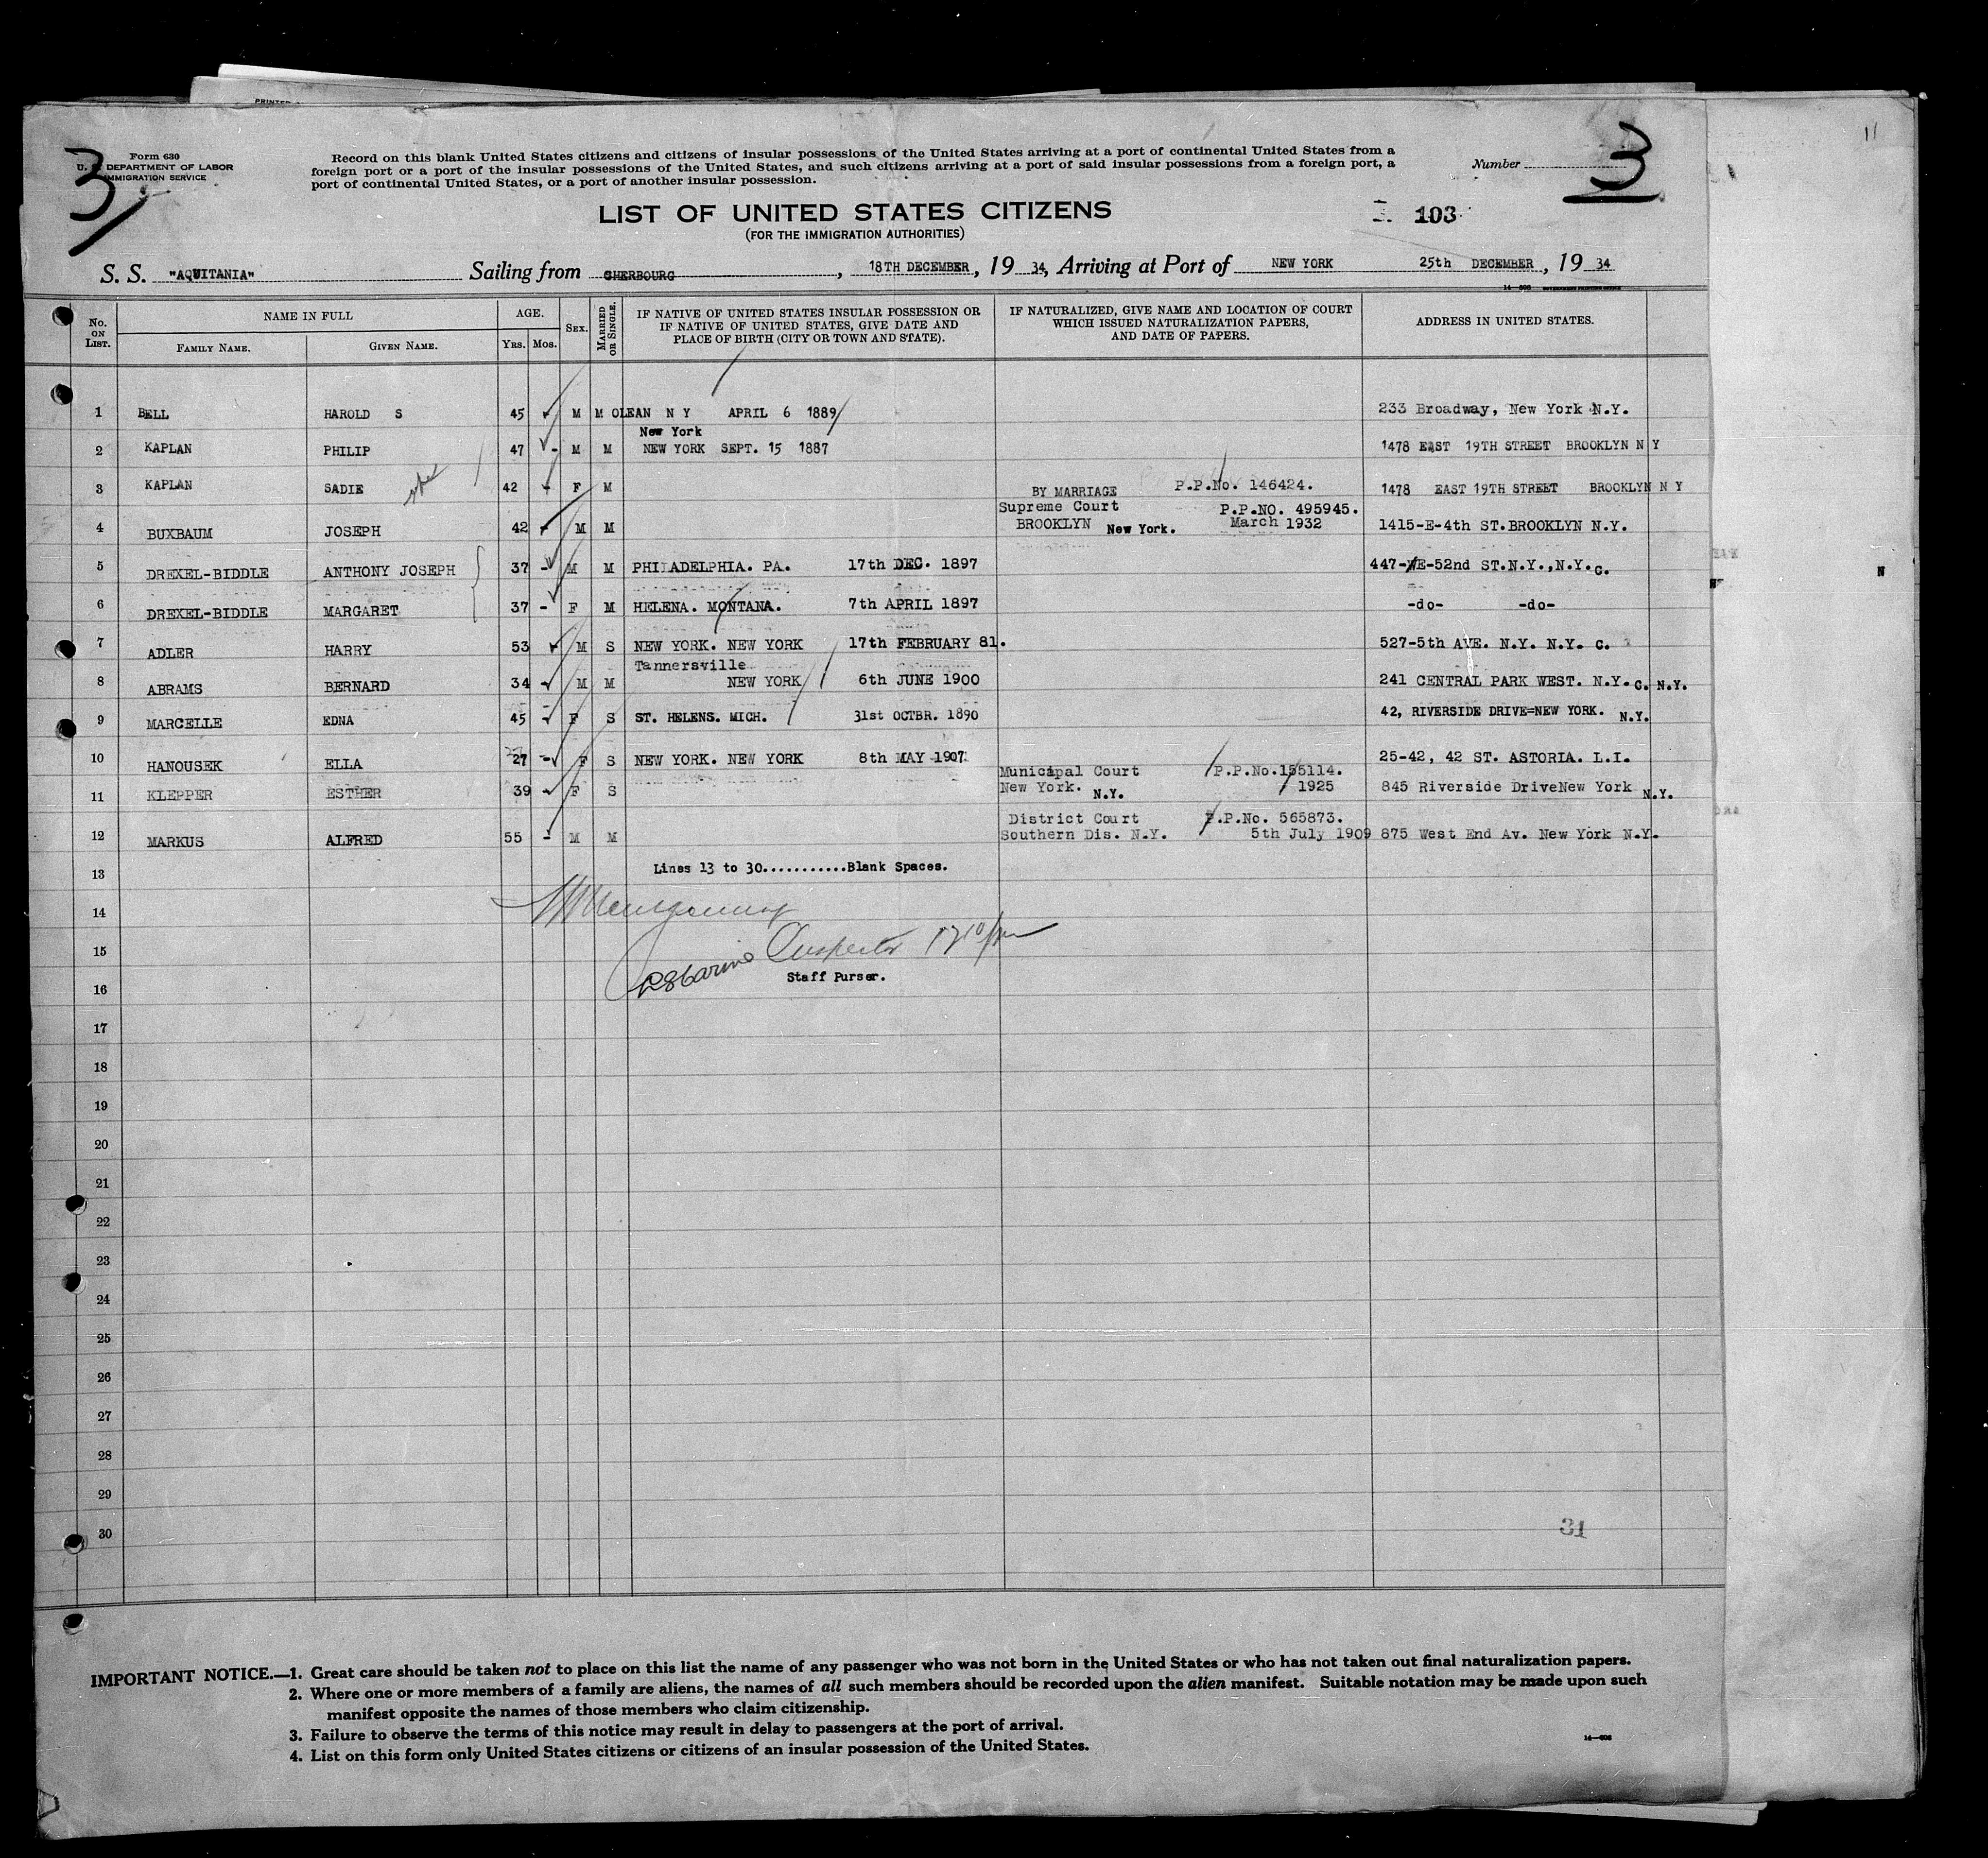 PRINTED
11
3
Form 630
U. S. DEPARTMENT OF LABOR
IMMIGRATION SERVICE
Record on this blank United States citizens and citizens of insular possessions of the United States arriving at a port of continental United States from a
foreign port or a port of the insular possessions of the United States, and such citizens arriving at a port of said insular possessions from a foreign port, a
port of continental United States, or a port of another insular possession.
Number 3
LIST OF UNITED STATES CITIZENS
(FOR THE IMMIGRATION AUTHORITIES)
103
S. S. "AQUITANIA" Sailing from CHERBOURG, 18TH DECEMBER, 19 34, Arriving at Port of NEW YORK 25th DECEMBER, 19 34
No. ON LIST. NAME IN FULL FAMILY NAME. GIVEN NAME. AGE. YRS. MOS. SEX. MARRIED OR SINGLE. IF NATIVE OF UNITED STATES INSULAR POSSESSION OR IF NATIVE OF UNITED STATES, GIVE DATE AND PLACE OF BIRTH (CITY OR TOWN AND STATE). IF NATURALIZED, GIVE NAME AND LOCATION OF COURT WHICH ISSUED NATURALIZATION PAPERS, AND DATE OF PAPERS. ADDRESS IN UNITED STATES.
1 BELL HAROLD S 45 - M M OLEAN N Y APRIL 6 1889 233 Broadway, New York N.Y.
New York
2 KAPLAN PHILIP 47 - M M NEW YORK SEPT. 15 1887 1478 EAST 19TH STREET BROOKLYN N Y
3 KAPLAN SADIE 42 - F M BY MARRIAGE P.P.No. 146424. 1478 EAST 19TH STREET BROOKLYN N Y
Supreme Court P.P.NO. 495945.
4 BUXBAUM JOSEPH 42 - M M BROOKLYN New York. March 1932 1415-E-4th ST.BROOKLYN N.Y.
5 DREXEL-BIDDLE ANTHONY JOSEPH 37 - M M PHILADELPHIA. PA. 17th DEC. 1897 447-E-52nd ST.N.Y.,N.Y.C.
6 DREXEL-BIDDLE MARGARET 37 - F M HELENA. MONTANA. 7th APRIL 1897 -do- -do-
7 ADLER HARRY 53 - M S NEW YORK. NEW YORK 17th FEBRUARY 81. 527-5th AVE. N.Y. N.Y. C.
Tannersville
8 ABRAMS BERNARD 34 - M M NEW YORK 6th JUNE 1900 241 CENTRAL PARK WEST. N.Y.C. N.Y.
9 MARCELLE EDNA 45 - F S ST. HELENS. MICH. 31st OCTBR. 1890 42, RIVERSIDE DRIVE=NEW YORK. N.Y.
10 HANOUSEK ELLA 27 - F S NEW YORK. NEW YORK 8th MAY 1907 25-42, 42 ST. ASTORIA. L.I.
Municipal Court P.P.No.155114.
11 KLEPPER ESTHER 39 - F S New York. N.Y. 1925 845 Riverside DriveNew York N.Y.
District Court P.P.No. 565873.
12 MARKUS ALFRED 55 - M M Southern Dis. N.Y. 5th July 1909 875 West End Av. New York N.Y.
13 Lines 13 to 30...........Blank Spaces.
14
15 Inspector
16 Staff Purser.
17
18
19
20
21
22
23
24
25
26
27
28
29
30
31
IMPORTANT NOTICE.—1. Great care should be taken not to place on this list the name of any passenger who was not born in the United States or who has not taken out final naturalization papers.
2. Where one or more members of a family are aliens, the names of all such members should be recorded upon the alien manifest. Suitable notation may be made upon such
manifest opposite the names of those members who claim citizenship.
3. Failure to observe the terms of this notice may result in delay to passengers at the port of arrival.
4. List on this form only United States citizens or citizens of an insular possession of the United States.